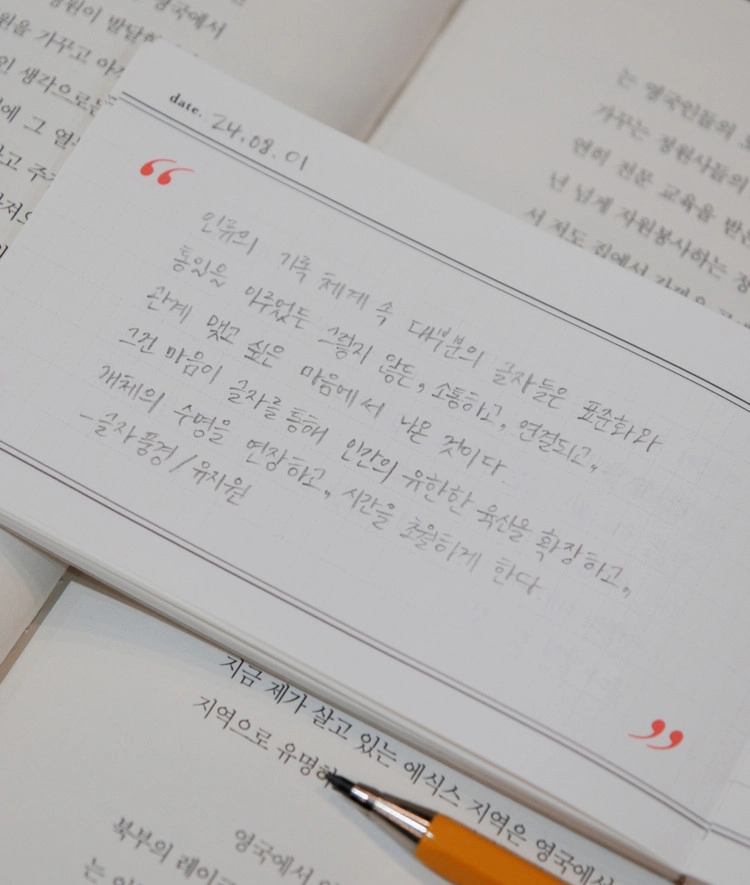 영국에서
원이 발달
원을 가꾸고 아
인 생각으로는
에 그 열
고 주
는 영국인들의
가꾸는 정원사들의
연히 전문 교육을 받은
넌 넘게 자원봉사하는 정
서 저도 집에서
date. 24.08.01
“
인류의 기록 체계 속 대부분의 글자들은 표준화와
통일을 이루었든 그렇지 않든, 소통하고, 연결되고,
관계 맺고 싶은 마음에서 나온 것이다.
그런 마음이 글자를 통해 인간의 유한한 육신을 확장하고,
개체의 수명을 연장하고, 시간을 초월하게 한다.
-글자 풍경 / 유지원
”
지금 제가 살고 있는 에식스 지역은 영국에서
지역으로 유명하
영국에서
북부의 레이크
는